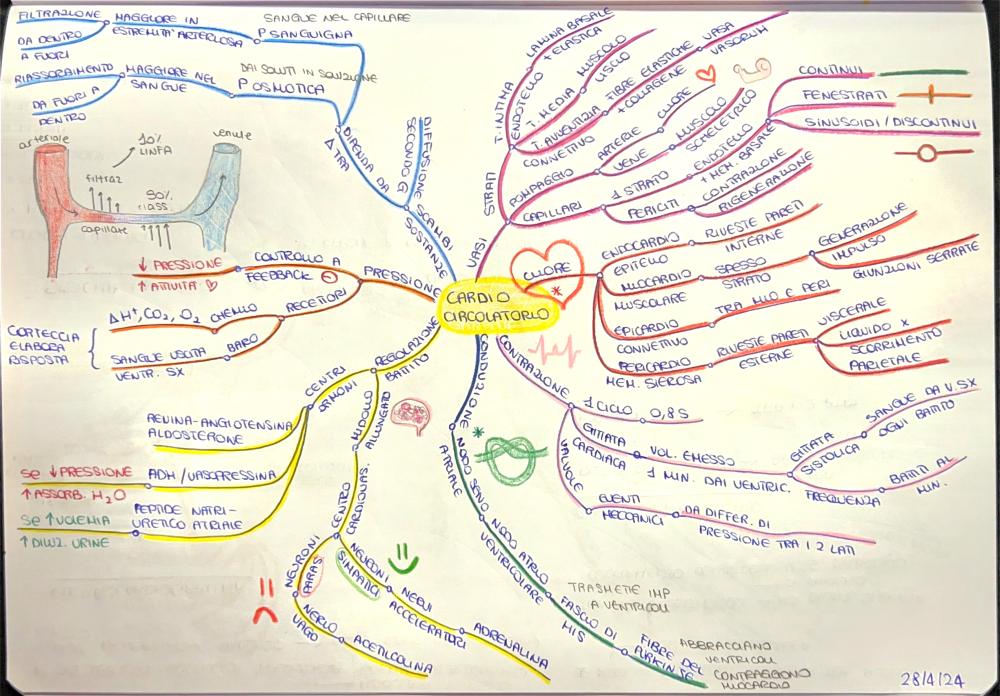 FILTRAZIONE
DA DENTRO
A FUORI
MAGGIORE IN
ESTREMITÀ ARTERIOSA
P SANGUIGNA
SANGUE NEL CAPILLARE
RIASSORBIMENTO
DA FUORI A
DENTRO
MAGGIORE NEL
SANGUE
P OSMOTICA
DAI SOLUTI IN SOLUZIONE
DIPENDA DA
Δ TRA
DIFFUSIONE
SECONDO G
SCAMBI
SOSTANZE
arteriole
10%
LINFA
venule
filtraz
90%
riass.
capillare
VASI
STRATI
T. INTIMA
ENDOTELIO
LAMINA BASALE
+ ELASTICA
T. MEDIA
MUSCOLO
LISCIO
T. AVVENTIZIA
CONNETTIVO
FIBRE ELASTICHE
+ COLLAGENE
VASA
VASORUM
POMPAGGIO
ARTERIE
CUORE
VENE
MUSCOLO
SCHELETRICO
CAPILLARI
1 STRATO
ENDOTELIO
+ MEM. BASALE
CONTINUI
FENESTRATI
SINUSOIDI / DISCONTINUI
PERICITI
CONTRAZIONE
RIGENERAZIONE
CARDIO
CIRCOLATORIO
CUORE
*
ENDOCARDIO
EPITELIO
RIVESTE PARETI
INTERNE
MIOCARDIO
MUSCOLARE
SPESSO
STRATO
GENERAZIONE
IMPULSO
GIUNZIONI SERRATE
EPICARDIO
CONNETTIVO
TRA MIO E PERI
PERICARDIO
MEM. SIEROSA
RIVESTE PARETI
ESTERNE
VISCERALE
LIQUIDO X
SCORRIMENTO
PARIETALE
PRESSIONE
CONTROLLO A
FEEDBACK ⊖
↓ PRESSIONE
↑ ATTIVITÀ ♡
RECETTORI
CHEMIO
ΔH⁺, CO₂, O₂
BARO
SANGUE USCITA
VENTR. SX
CORTECCIA
ELABORA
RISPOSTA
REGOLAZIONE
BATTITO
CENTRI
ORMONI
RENINA-ANGIOTENSINA
ALDOSTERONE
ADH / VASOPRESSINA
Se ↓ PRESSIONE
↑ ASSORB. H₂O
PEPTIDE NATRI-
URETICO ATRIALE
Se ↑ VOLEMIA
↑ DILUIZ. URINE
MIDOLLO
ALLUNGATO
CENTRO
CARDIOVAS.
NEURONI
PARAS
NERVO
VAGO
ACETILCOLINA
NEURONI
SIMPATICI
NERVI
ACCELERATORI
ADRENALINA
CONDUZIONE
*
NODO SENO
ATRIALE
NODO ATRIO
VENTRICOLARE
TRASMETTE IMP
A VENTRICOLI
FASCIO DI
HIS
FIBRE DEL
PURKINJE
ABBRACCIANO
VENTRICOLI
CONTRAGGONO
MIOCARDIO
CONTRAZIONE
1 CICLO
0,8 S
GITTATA
CARDIACA
VOL. EMESSO
1 MIN. DAI VENTRIC.
GITTATA
SISTOLICA
SANGUE DA V. SX
OGNI BATTITO
FREQUENZA
BATTITI AL
MIN.
VALVOLE
EVENTI
MECCANICI
DA DIFFER. DI
PRESSIONE TRA I 2 LATI
28/4/24